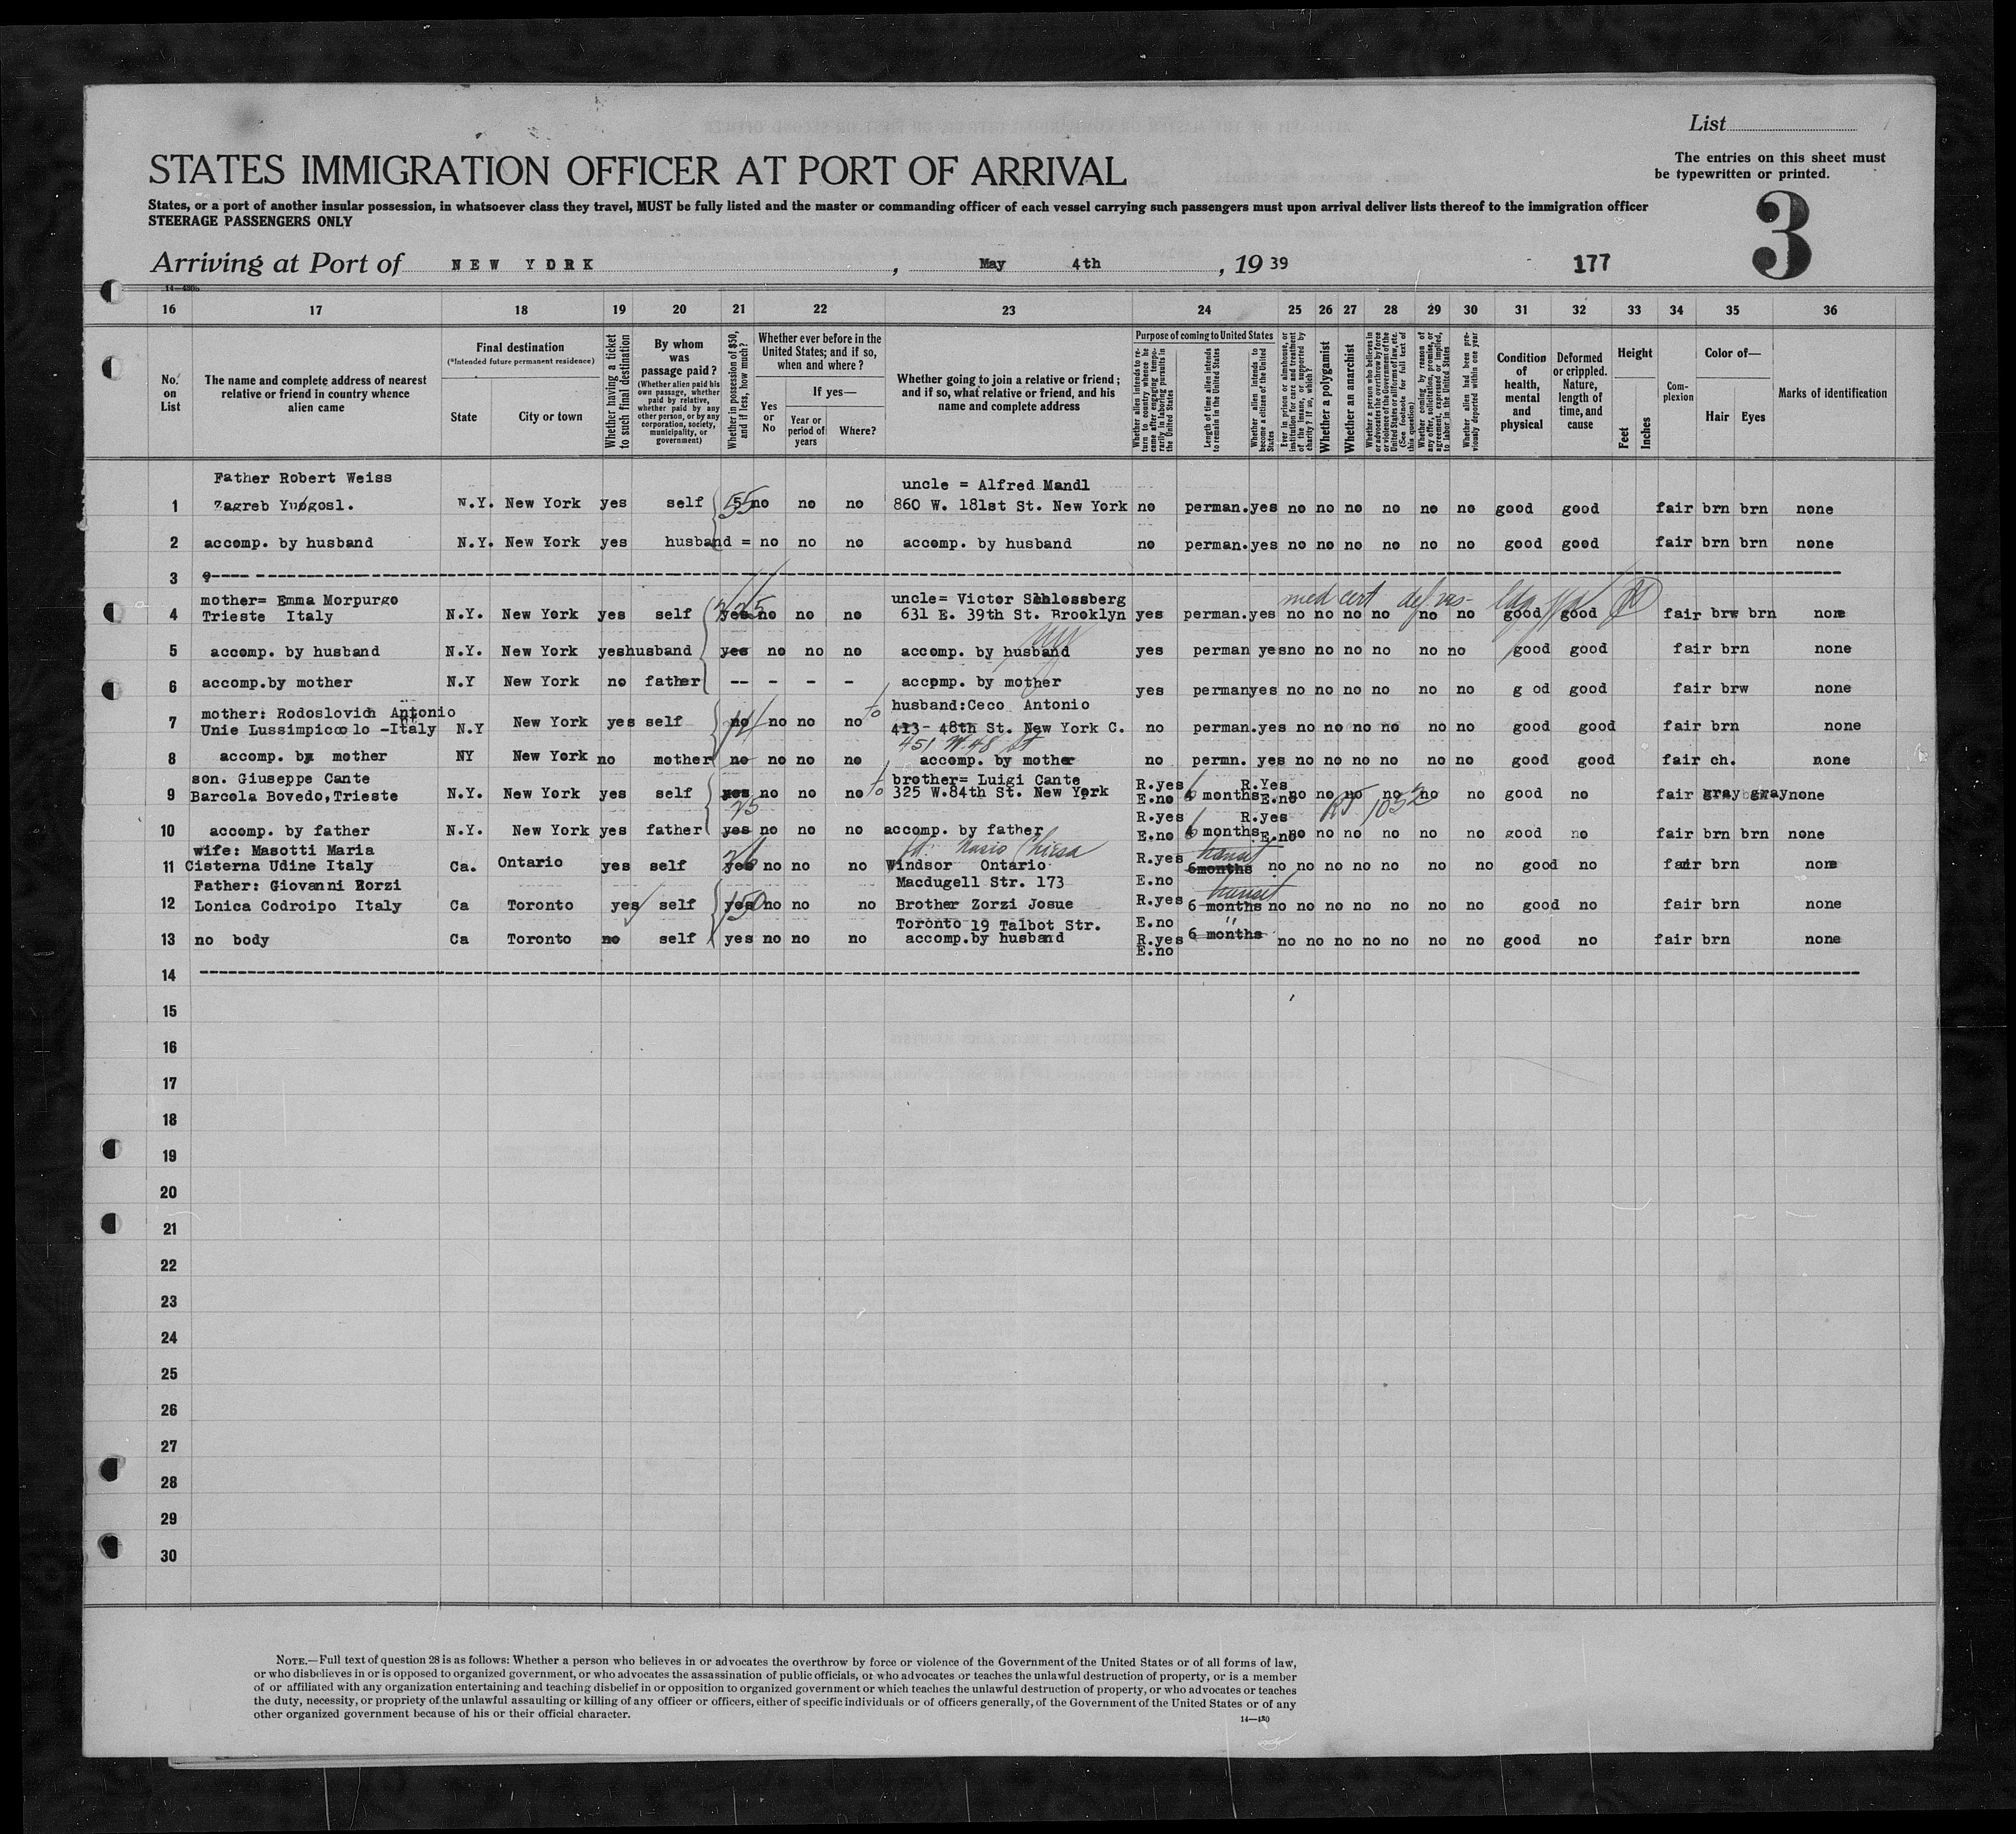 List
The entries on this sheet must
be typewritten or printed.
STATES IMMIGRATION OFFICER AT PORT OF ARRIVAL
3
States, or a port of another insular possession, in whatsoever class they travel, MUST be fully listed and the master or commanding officer of each vessel carrying such passengers must upon arrival deliver lists thereof to the immigration officer
STEERAGE PASSENGERS ONLY
Arriving at Port of NEW YORK , May 4th , 19 39 177
16 17 18 19 20 21 22 23 24 25 26 27 28 29 30 31 32 33 34 35 36
No. on List
The name and complete address of nearest relative or friend in country whence alien came
Final destination
(*Intended future permanent residence)
State
City or town
Whether having a ticket to such final destination
By whom was passage paid?
(Whether alien paid his own passage, whether paid by relative, whether paid by any other person, or by any corporation, society, municipality, or government)
Whether in possession of $50, and if less, how much?
Whether ever before in the United States; and if so, when and where?
Yes or No
If yes—
Year or period of years
Where?
Whether going to join a relative or friend; and if so, what relative or friend, and his name and complete address
Purpose of coming to United States
Whether alien intends to return to country whence he came after engaging temporarily in laboring pursuits in the United States
Length of time alien intends to remain in the United States
Whether alien intends to become a citizen of the United States
Ever in prison or almshouse, or institution for care and treatment of the insane, or supported by charity? If so, which?
Whether a polygamist
Whether an anarchist
Whether a person who believes in or advocates the overthrow by force or violence of the Government of the United States or all forms of law, etc. (See footnote for full text of this question)
Whether coming by reason of any offer, solicitation, promise, or agreement, expressed or implied, to labor in the United States
Whether alien had been previously deported within one year
Condition of health, mental and physical
Deformed or crippled. Nature, length of time, and cause
Height
Feet
Inches
Complexion
Color of—
Hair Eyes
Marks of identification
Father Robert Weiss uncle = Alfred Mandl
1 Zagreb Yugosl. N.Y. New York yes self 55 no no no 860 W. 181st St. New York no perman. yes no no no no no no good good fair brn brn none
2 accomp. by husband N.Y. New York yes husband = no no no accomp. by husband no perman. yes no no no no no no good good fair brn brn none
3
mother= Emma Morpurgo uncle= Victor Schlossberg med cert
4 Trieste Italy N.Y. New York yes self yes no no no 631 E. 39th St. Brooklyn yes perman. yes no no no no no no good good fair brw brn none
5 accomp. by husband N.Y. New York yes husband yes no no no accomp. by husband yes perman yes no no no no no no good good fair brn none
6 accomp.by mother N.Y New York no father -- - - - accomp. by mother yes perman yes no no no no no no g od good fair brw none
mother: Rodoslovich Antonio husband:Ceco Antonio
7 Unie Lussimpiccolo -Italy N.Y New York yes self no no no no 413- 48th St. New York C. no perman. yes no no no no no no good good fair brn none
451 W 48 St
8 accomp. by mother NY New York no mother no no no no accomp. by mother no permn. yes no no no no no no good good fair ch. none
son. Giuseppe Cante to brother= Luigi Cante R.yes R.Yes
9 Barcola Bovedo,Trieste N.Y. New York yes self yes no no no 325 W.84th St. New York E.no 6 months E.no no no no no no no good no fair gray gray none
75 R.yes R.yes 1052
10 accomp. by father N.Y. New York yes father yes no no no accomp. by father E.no 6 months E.no no no no no no no good no fair brn brn none
wife: Masotti Maria Chiesa transit
11 Cisterna Udine Italy Ca. Ontario yes self yes no no no Windsor Ontario R.yes 6months no no no no no no no good no fair brn none
Father: Giovanni Rorzi Macdugell Str. 173 E.no transit
12 Lonica Codroipo Italy Ca Toronto yes self yes 150 no no no Brother Zorzi Josue R.yes 6 months no no no no no no no good no fair brn none
Toronto 19 Talbot Str. E.no "
13 no body Ca Toronto no self yes no no no accomp.by husband R.yes 6 months no no no no no no no good no fair brn none
E.no
14
15
16
17
18
19
20
21
22
23
24
25
26
27
28
29
30
NOTE.—Full text of question 28 is as follows: Whether a person who believes in or advocates the overthrow by force or violence of the Government of the United States or of all forms of law,
or who disbelieves in or is opposed to organized government, or who advocates the assassination of public officials, or who advocates or teaches the unlawful destruction of property, or is a member
of or affiliated with any organization entertaining and teaching disbelief in or opposition to organized government or which teaches the unlawful destruction of property, or who advocates or teaches
the duty, necessity, or propriety of the unlawful assaulting or killing of any officer or officers, either of specific individuals or of officers generally, of the Government of the United States or of any
other organized government because of his or their official character.
14—430